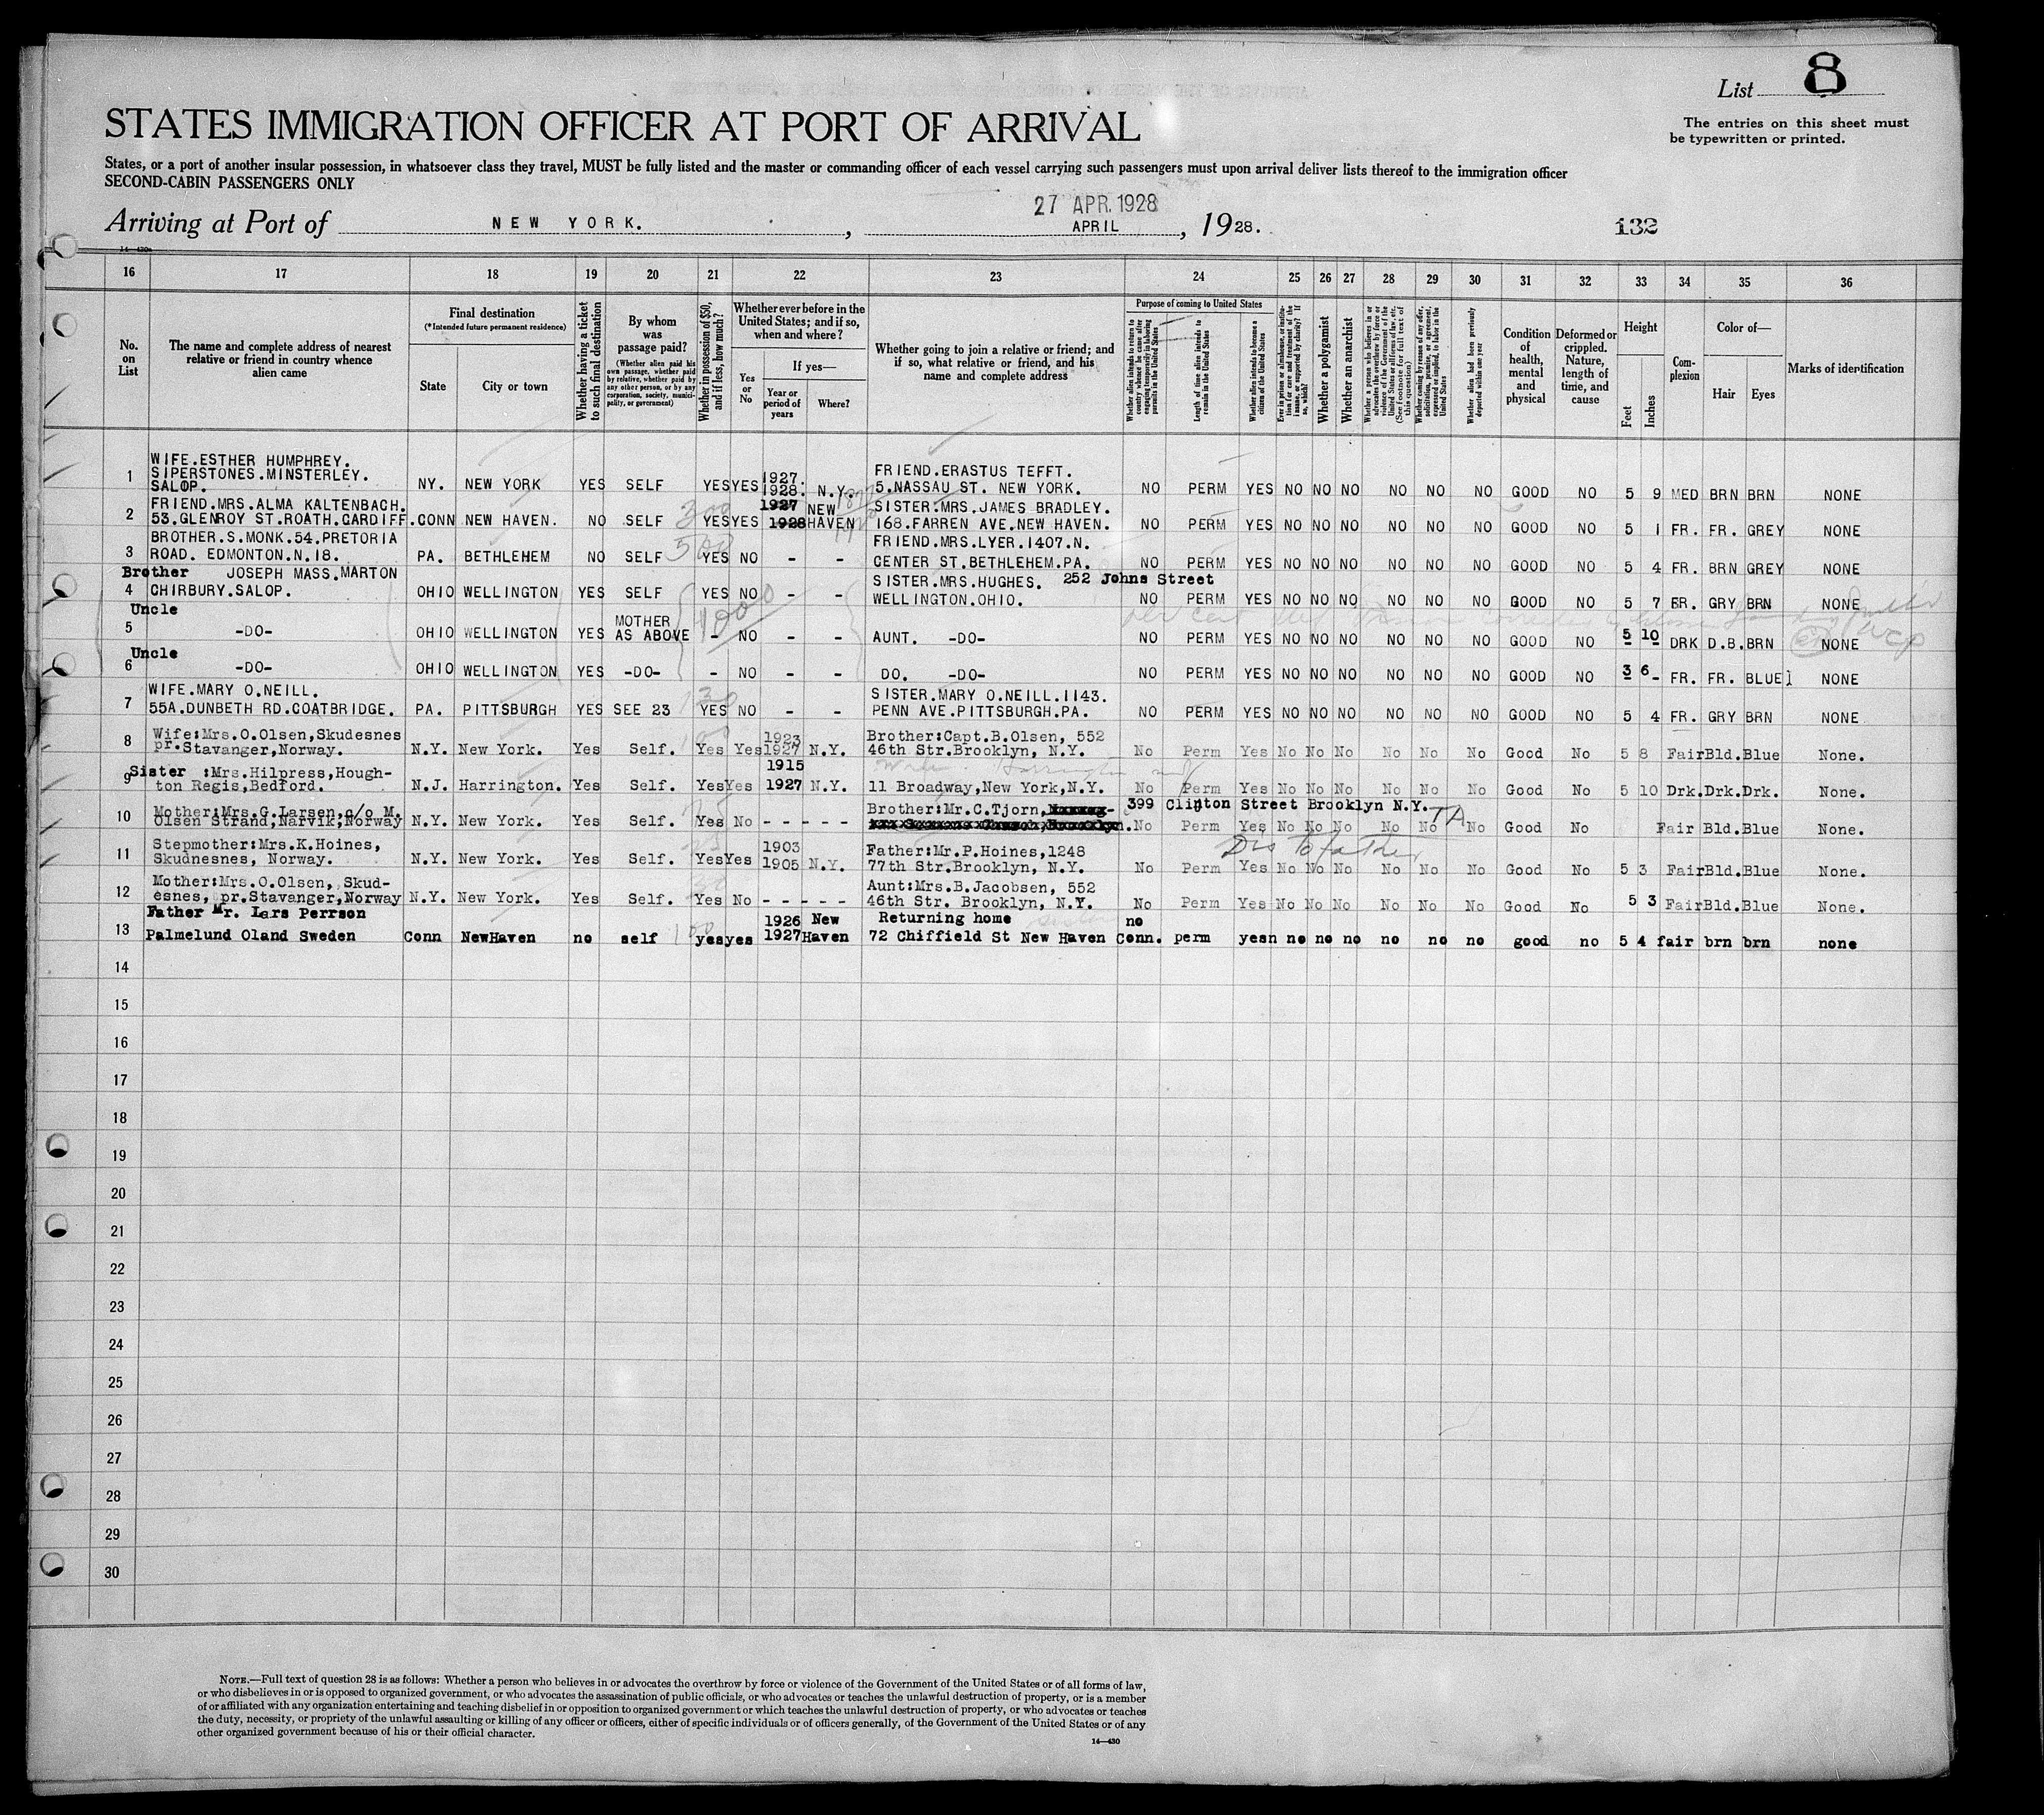 List 8
STATES IMMIGRATION OFFICER AT PORT OF ARRIVAL
The entries on this sheet must
be typewritten or printed.
States, or a port of another insular possession, in whatsoever class they travel, MUST be fully listed and the master or commanding officer of each vessel carrying such passengers must upon arrival deliver lists thereof to the immigration officer
SECOND-CABIN PASSENGERS ONLY
27 APR. 1928
Arriving at Port of NEW YORK. , APRIL , 1928.
132
14—430a
16 17 18 19 20 21 22 23 24 25 26 27 28 29 30 31 32 33 34 35 36
No. on List
The name and complete address of nearest relative or friend in country whence alien came
Final destination
(*Intended future permanent residence)
State
City or town
Whether having a ticket to such final destination
By whom was passage paid?
(Whether alien paid his own passage, whether paid by relative, whether paid by any other person, or by any corporation, society, municipality, or government)
Whether in possession of $50, and if less, how much?
Whether ever before in the United States; and if so, when and where?
Yes or No
If yes—
Year or period of years
Where?
Whether going to join a relative or friend; and if so, what relative or friend, and his name and complete address
Purpose of coming to United States
Whether alien intends to return to country whence he came after engaging temporarily in laboring pursuits in the United States
Length of time alien intends to remain in the United States
Whether alien intends to become a citizen of the United States
Ever in prison or almshouse, or institution for care and treatment of the insane, or supported by charity? If so, which?
Whether a polygamist
Whether an anarchist
Whether a person who believes in or advocates the overthrow by force or violence of the Government of the United States or all forms of law, etc. (See footnote for full text of this question)
Whether coming by reason of any offer, solicitation, promise, or agreement, expressed or implied, to labor in the United States
Whether alien had been previously deported within one year
Condition of health, mental and physical
Deformed or crippled. Nature, length of time, and cause
Height
Feet
Inches
Complexion
Color of—
Hair
Eyes
Marks of identification
1 WIFE.ESTHER HUMPHREY.
SIPERSTONES.MINSTERLEY.
SALOP. NY. NEW YORK YES SELF YES YES 1927. 1928. N.Y. FRIEND.ERASTUS TEFFT.
5.NASSAU ST. NEW YORK. NO PERM YES NO NO NO NO NO NO GOOD NO 5 9 MED BRN BRN NONE
2 FRIEND.MRS.ALMA KALTENBACH.
53.GLENROY ST.ROATH.CARDIFF. CONN NEW HAVEN. NO SELF 300 YES YES 1927 1928 NEW HAVEN SISTER.MRS.JAMES BRADLEY.
168.FARREN AVE.NEW HAVEN. NO PERM YES NO NO NO NO NO NO GOOD NO 5 1 FR. FR. GREY NONE
3 BROTHER.S.MONK.54.PRETORIA
ROAD. EDMONTON.N.18. PA. BETHLEHEM NO SELF 500 YES NO - - FRIEND.MRS.LYER.1407.N.
CENTER ST.BETHLEHEM.PA. NO PERM YES NO NO NO NO NO NO GOOD NO 5 4 FR. BRN GREY NONE
4 Brother JOSEPH MASS.MARTON
CHIRBURY.SALOP. OHIO WELLINGTON YES SELF YES NO - - SISTER.MRS.HUGHES. 252 Johns Street
WELLINGTON.OHIO. NO PERM YES NO NO NO NO NO NO GOOD NO 5 7 FR. GRY BRN NONE
5 Uncle
-DO- OHIO WELLINGTON YES MOTHER AS ABOVE 1000 - NO - - AUNT. -DO- NO PERM YES NO NO NO NO NO NO GOOD NO 5 10 DRK D.B. BRN NONE
6 Uncle
-DO- OHIO WELLINGTON YES -DO- - NO - - DO. -DO- NO PERM YES NO NO NO NO NO NO GOOD NO 3 6 FR. FR. BLUE NONE
7 WIFE.MARY O.NEILL.
55A.DUNBETH RD.COATBRIDGE. PA. PITTSBURGH YES SEE 23 130 YES NO - - SISTER.MARY O.NEILL.1143.
PENN AVE.PITTSBURGH.PA. NO PERM YES NO NO NO NO NO NO GOOD NO 5 4 FR. GRY BRN NONE
8 Wife:Mrs.O.Olsen,Skudesnes
pr.Stavanger,Norway. N.Y. New York. Yes Self. 100 Yes Yes 1923 1927 N.Y. Brother:Capt.B.Olsen, 552
46th Str.Brooklyn, N.Y. No Perm Yes No No No No No No Good No 5 8 Fair Bld. Blue None.
9 Sister :Mrs.Hilpress,Hough-
ton Regis,Bedford. N.J. Harrington. Yes Self. Yes Yes 1915 1927 N.Y. 11 Broadway,New York,N.Y. No Perm Yes No No No No No No Good No 5 10 Drk. Drk. Drk. None.
10 Mother:Mrs.G.Larsen,c/o M.
Olsen Strand,Narvik,Norway N.Y. New York. Yes Self. Yes No - - - - - Brother:Mr.C.Tjorn, 399 Clinton Street Brooklyn N.Y. TA
No Perm Yes No No No No No No Good No Fair Bld. Blue None.
11 Stepmother:Mrs.K.Hoines,
Skudnesnes, Norway. N.Y. New York. Yes Self. Yes Yes 1903 1905 N.Y. Father:Mr.P.Hoines,1248
77th Str.Brooklyn, N.Y. Dis to father No Perm Yes No No No No No No Good No 5 3 Fair Bld. Blue None.
12 Mother:Mrs.O.Olsen, Skud-
esnes, pr.Stavanger,Norway N.Y. New York. Yes Self. Yes No - - - - - Aunt:Mrs.B.Jacobsen, 552
46th Str. Brooklyn, N.Y. No Perm Yes No No No No No No Good No 5 3 Fair Bld. Blue None.
13 Father Mr. Lars Perrson
Palmelund Oland Sweden Conn NewHaven no self 100 yes yes 1926 1927 New Haven Returning home
72 Chiffield St New Haven Conn. no perm yesn no no no no no no good no 5 4 fair brn brn none
14
15
16
17
18
19
20
21
22
23
24
25
26
27
28
29
30
NOTE.—Full text of question 28 is as follows: Whether a person who believes in or advocates the overthrow by force or violence of the Government of the United States or of all forms of law,
or who disbelieves in or is opposed to organized government, or who advocates the assassination of public officials, or who advocates or teaches the unlawful destruction of property, or is a member
of or affiliated with any organization entertaining and teaching disbelief in or opposition to organized government or which teaches the unlawful destruction of property, or who advocates or teaches
the duty, necessity, or propriety of the unlawful assaulting or killing of any officer or officers, either of specific individuals or of officers generally, of the Government of the United States or of any
other organized government because of his or their official character.
14—430